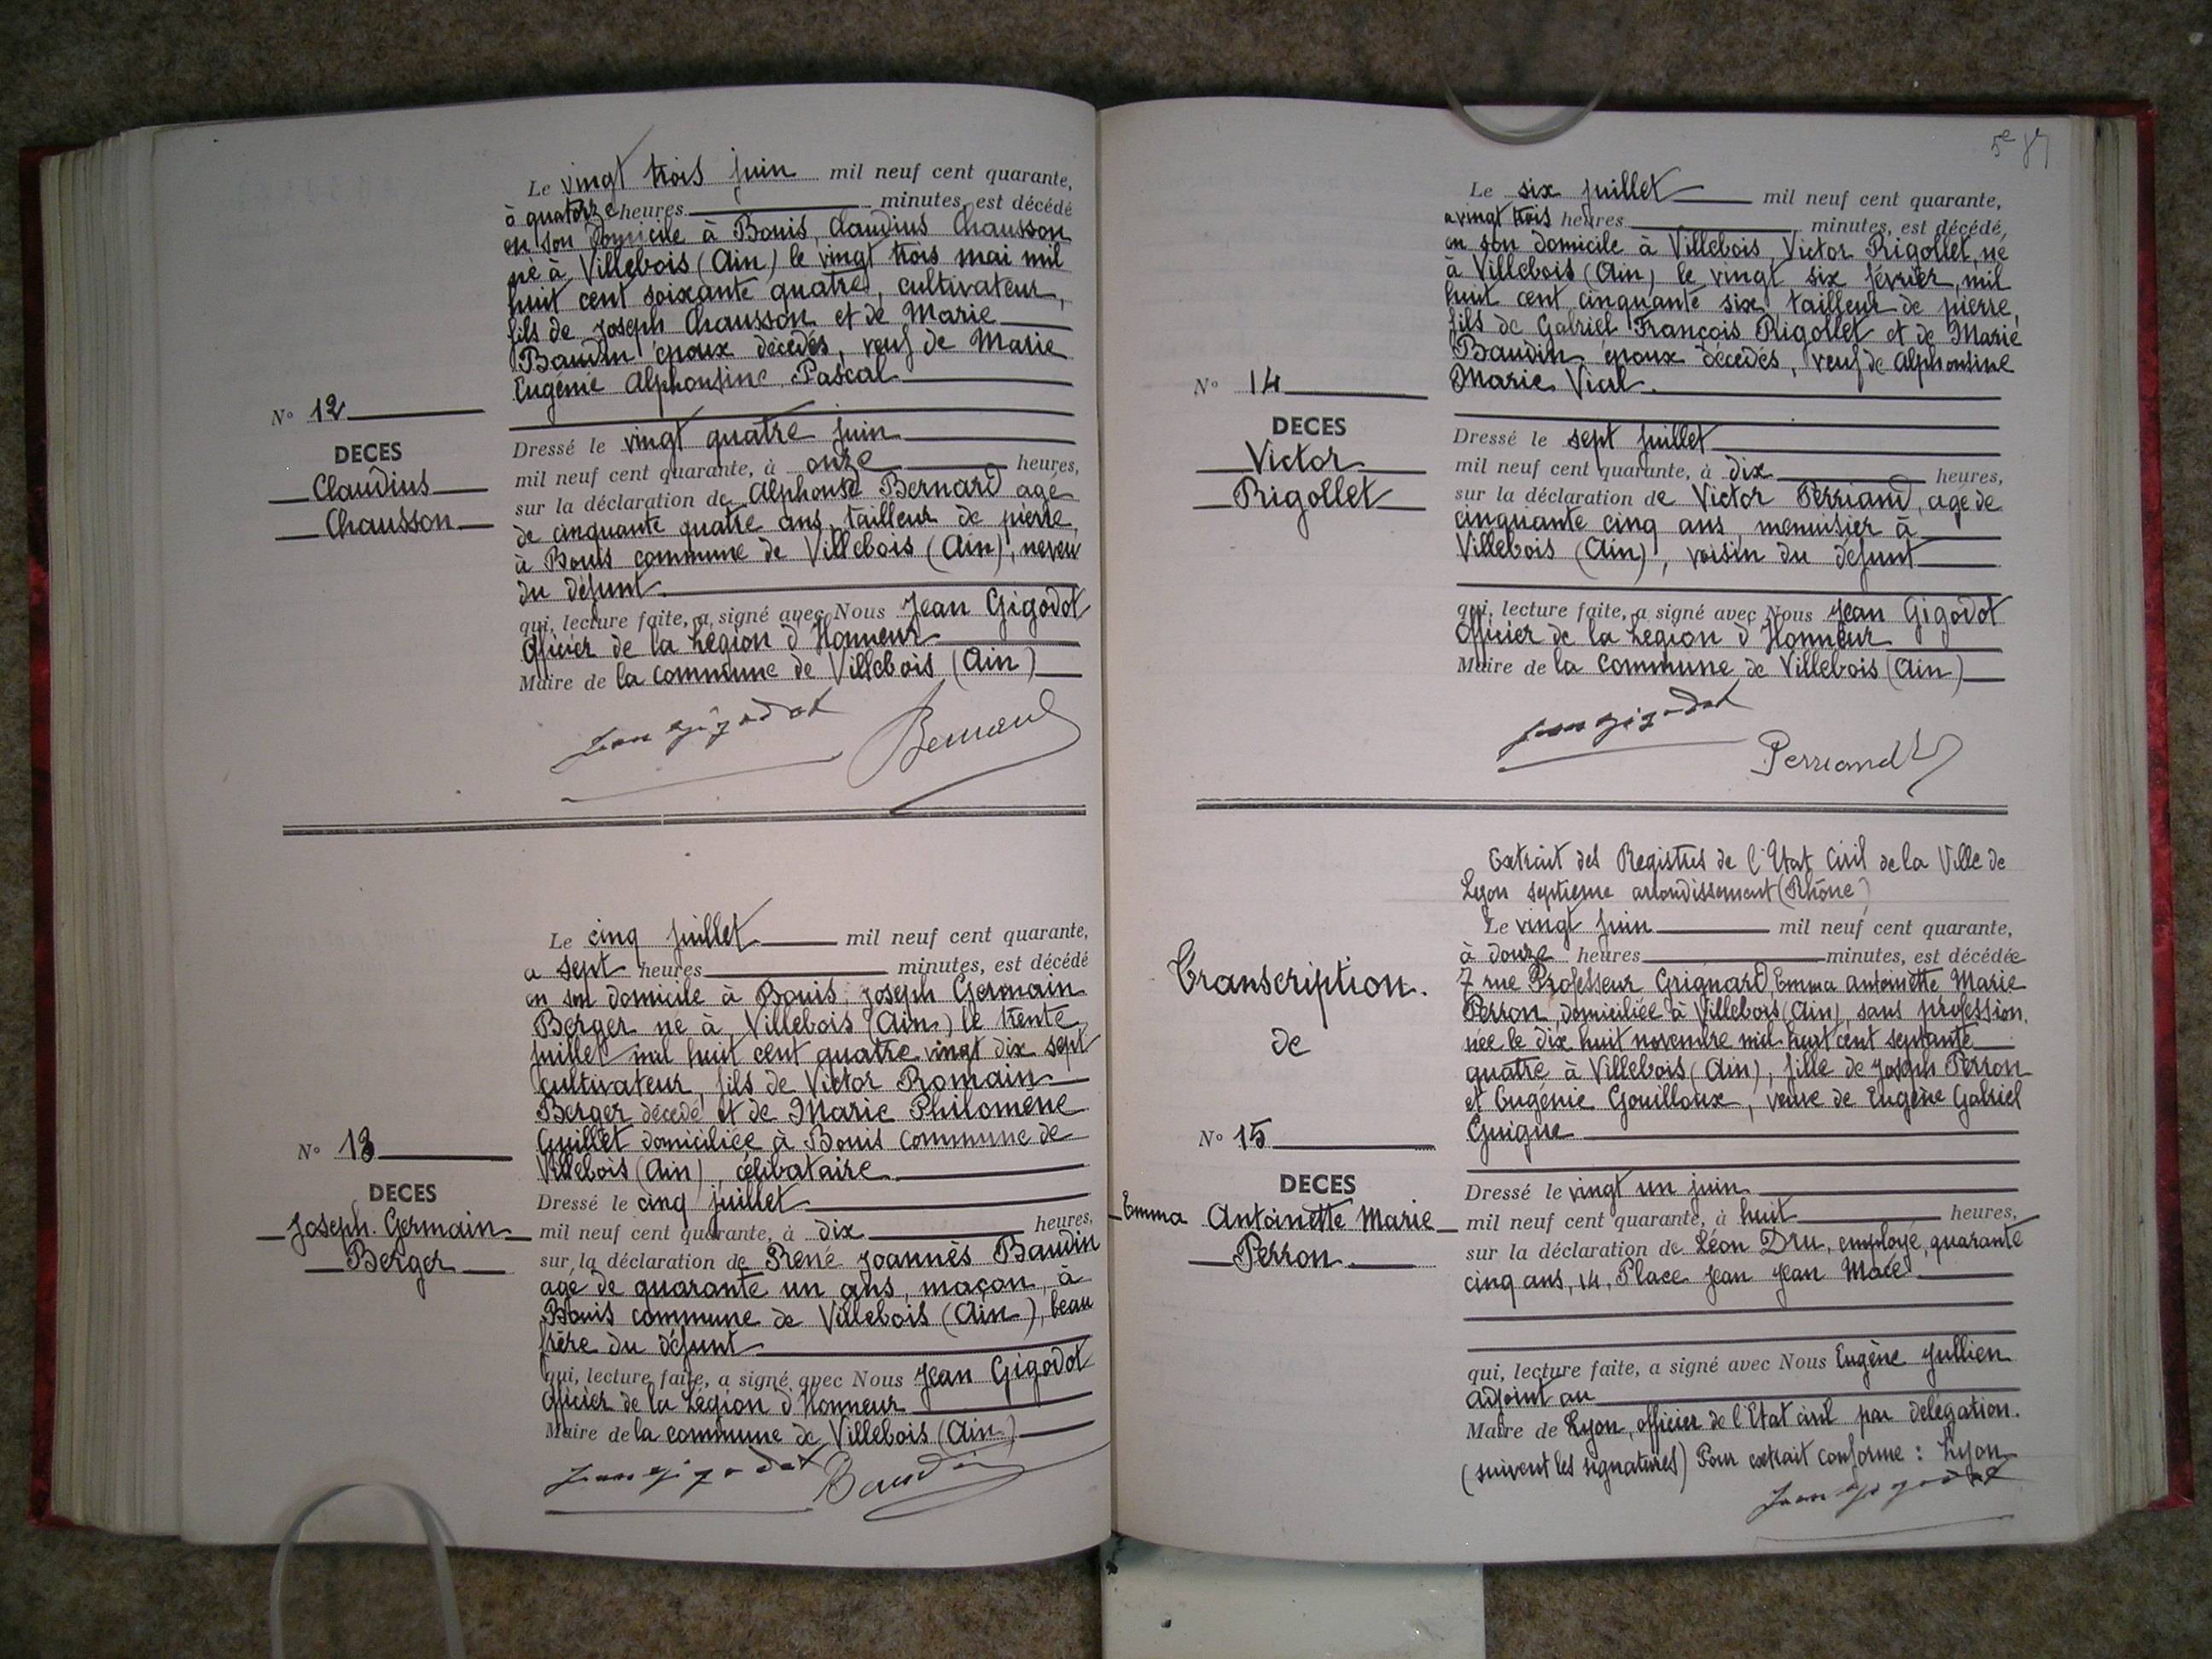 Le vingt trois juin mil neuf cent quarante,
à quatorze heures minutes, est décédé
en son domicile à Bouis, Claudius Chausson
né à Villebois (Ain) le vingt trois mai mil
huit cent soixante quatre, cultivateur,
fils de Joseph Chausson et de Marie
Baudin époux décédés, veuf de Marie
Eugénie Alphonsine Pascal
N° 12
DECES
Claudius
Chausson
Dressé le vingt quatre juin
mil neuf cent quarante, à onze heures,
sur la déclaration de Alphonse Bernard agé
de cinquante quatre ans, tailleur de pierre,
à Bouis commune de Villebois (Ain), neveu
du défunt
qui, lecture faite, a signé avec Nous Jean Gigodot
Officier de la Légion d'Honneur
Maire de la commune de Villebois (Ain)
Jean Gigodot Bernard
Le cinq juillet mil neuf cent quarante,
a sept heures minutes, est décédé
en son domicile à Bouis, Joseph Germain
Berger né à Villebois (Ain) le trente
juillet mil huit cent quatre vingt dix sept
cultivateur, fils de Victor Romain
Berger décédé et de Marie Philomène
Guillet domiciliée à Bouis commune de
Villebois (Ain), célibataire
N° 13
DECES
Joseph. Germain
Berger
Dressé le cinq juillet
mil neuf cent quarante, à dix heures,
sur la déclaration de René Joannès Baudin
agé de quarante un ans, maçon, à
Bouis commune de Villebois (Ain), beau
frère du défunt
qui, lecture faite, a signé avec Nous Jean Gigodot
Officier de la Légion d'Honneur
Maire de la commune de Villebois (Ain)
Jean Gigodot Baudin
5e 87
Le six juillet mil neuf cent quarante,
a vingt trois heures minutes, est décédé,
en son domicile à Villebois, Victor Rigollet, né
à Villebois (Ain) le vingt six février, mil
huit cent cinquante six, tailleur de pierre,
fils de Gabriel François Rigollet et de Marie
Baudin époux décédés, veuf de Alphonsine
Marie Vial.
N° 14
DECES
Victor
Rigollet
Dressé le sept juillet
mil neuf cent quarante, à dix heures,
sur la déclaration de Victor Perriand, agé de
cinquante cinq ans, menuisier à
Villebois (Ain), voisin du défunt
qui, lecture faite, a signé avec Nous Jean Gigodot
Officier de la Légion d'Honneur
Maire de la commune de Villebois (Ain)
Jean Gigodot
Perriand
Extrait des Registres de l'Etat Civil de la Ville de
Lyon septième arrondissement (Rhône)
Le vingt juin mil neuf cent quarante,
à douze heures minutes, est décédée
7 rue Professeur Grignard, Emma Antoinette Marie
Perron, domiciliée à Villebois (Ain), sans profession,
née le dix huit novembre mil huit cent septante
quatre à Villebois (Ain), fille de Joseph Perron
et Eugénie Gouilloux, veuve de Eugène Gabriel
Guigue
Transcription.
de
N° 15
DECES
Emma Antoinette Marie
Perron
Dressé le vingt un juin
mil neuf cent quarante, à huit heures,
sur la déclaration de Léon Dru, employé, quarante
cinq ans, 14, Place Jean Jean Macé
qui, lecture faite, a signé avec Nous Eugène Jullien
adjoint au
Maire de Lyon, officier de l'Etat civil par délégation.
(suivent les signatures) Pour extrait conforme : Lyon
Jean Gigodot